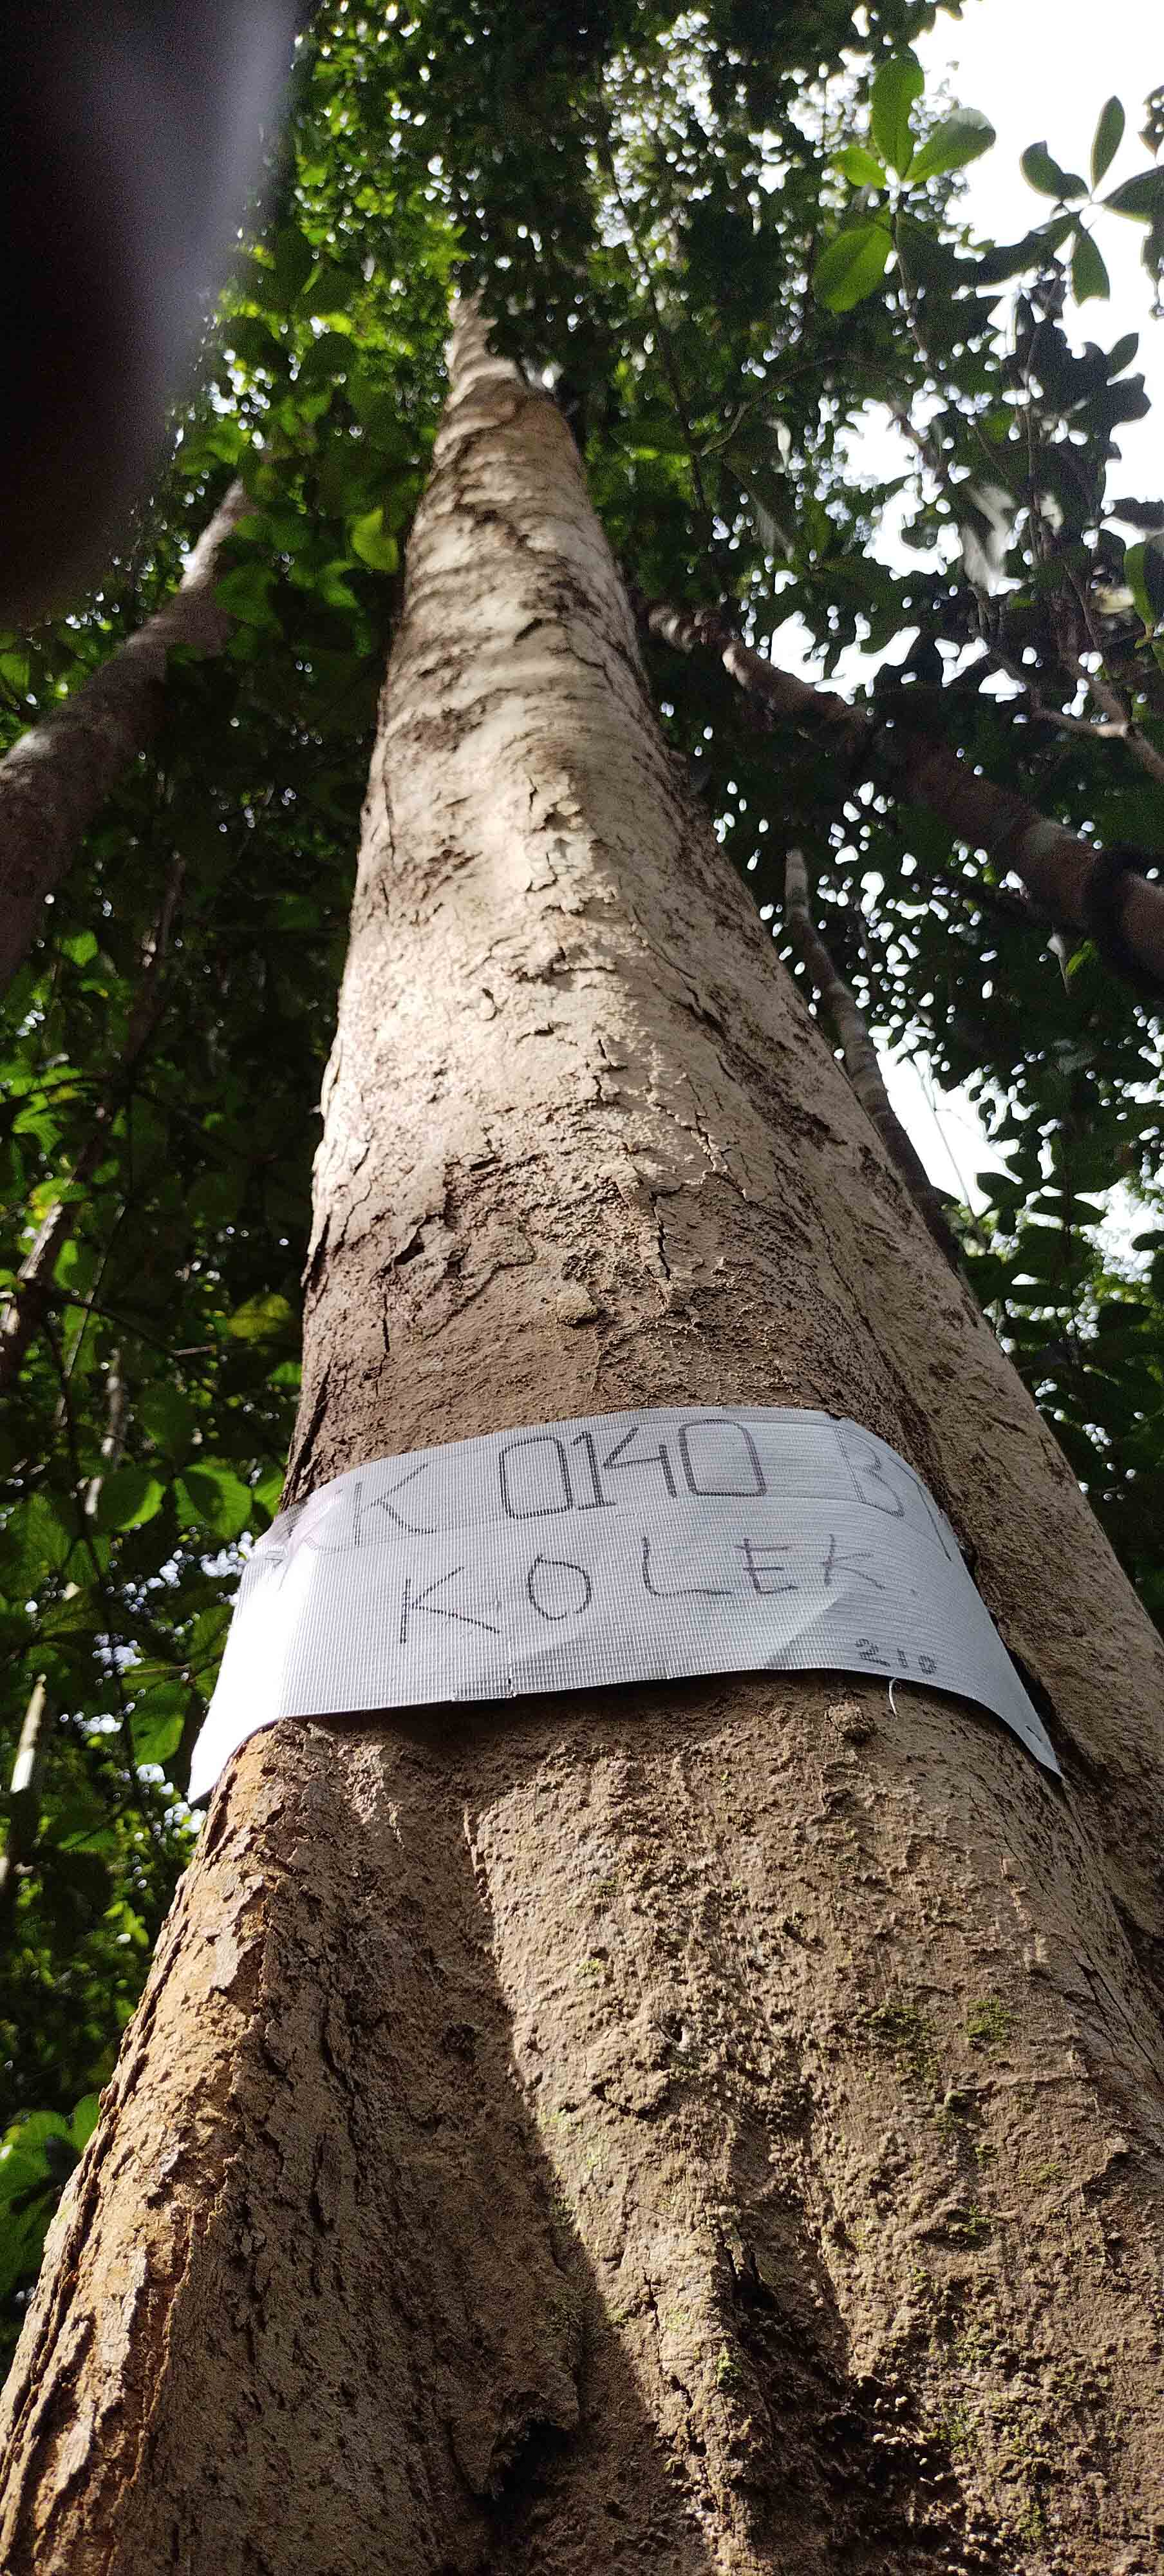 K 0140 B
KOLEK
210